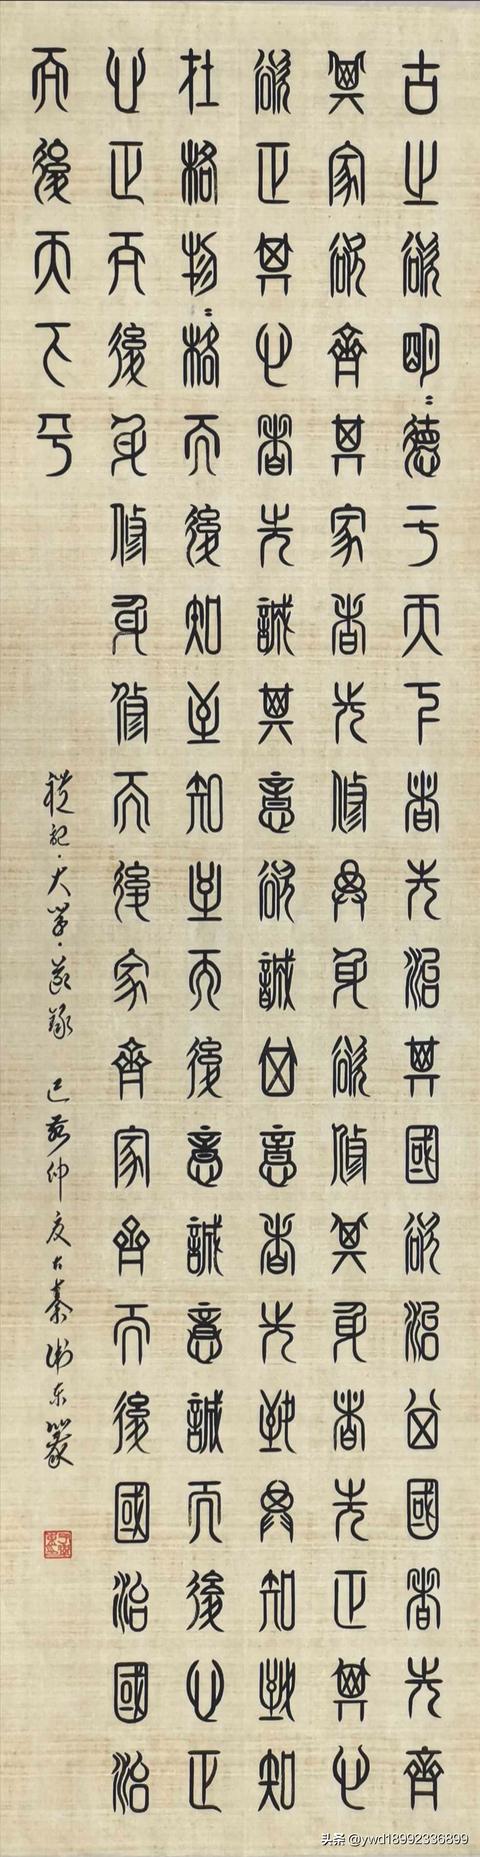 古之欲明〻德于天下者先治其國欲治其國者先齊
其家欲齊其家者先修其身欲修其身者先正其心
欲正其心者先誠其意欲誠其意者先致其知致知
在格物〻格而後知至知至而後意誠意誠而後心正
心正而後身修身修而後家齊家齊而後國治國治
而後天下平
禮記·大學·節錄 己亥仲夏古秦衛东篆
头条 @ywd18992336899